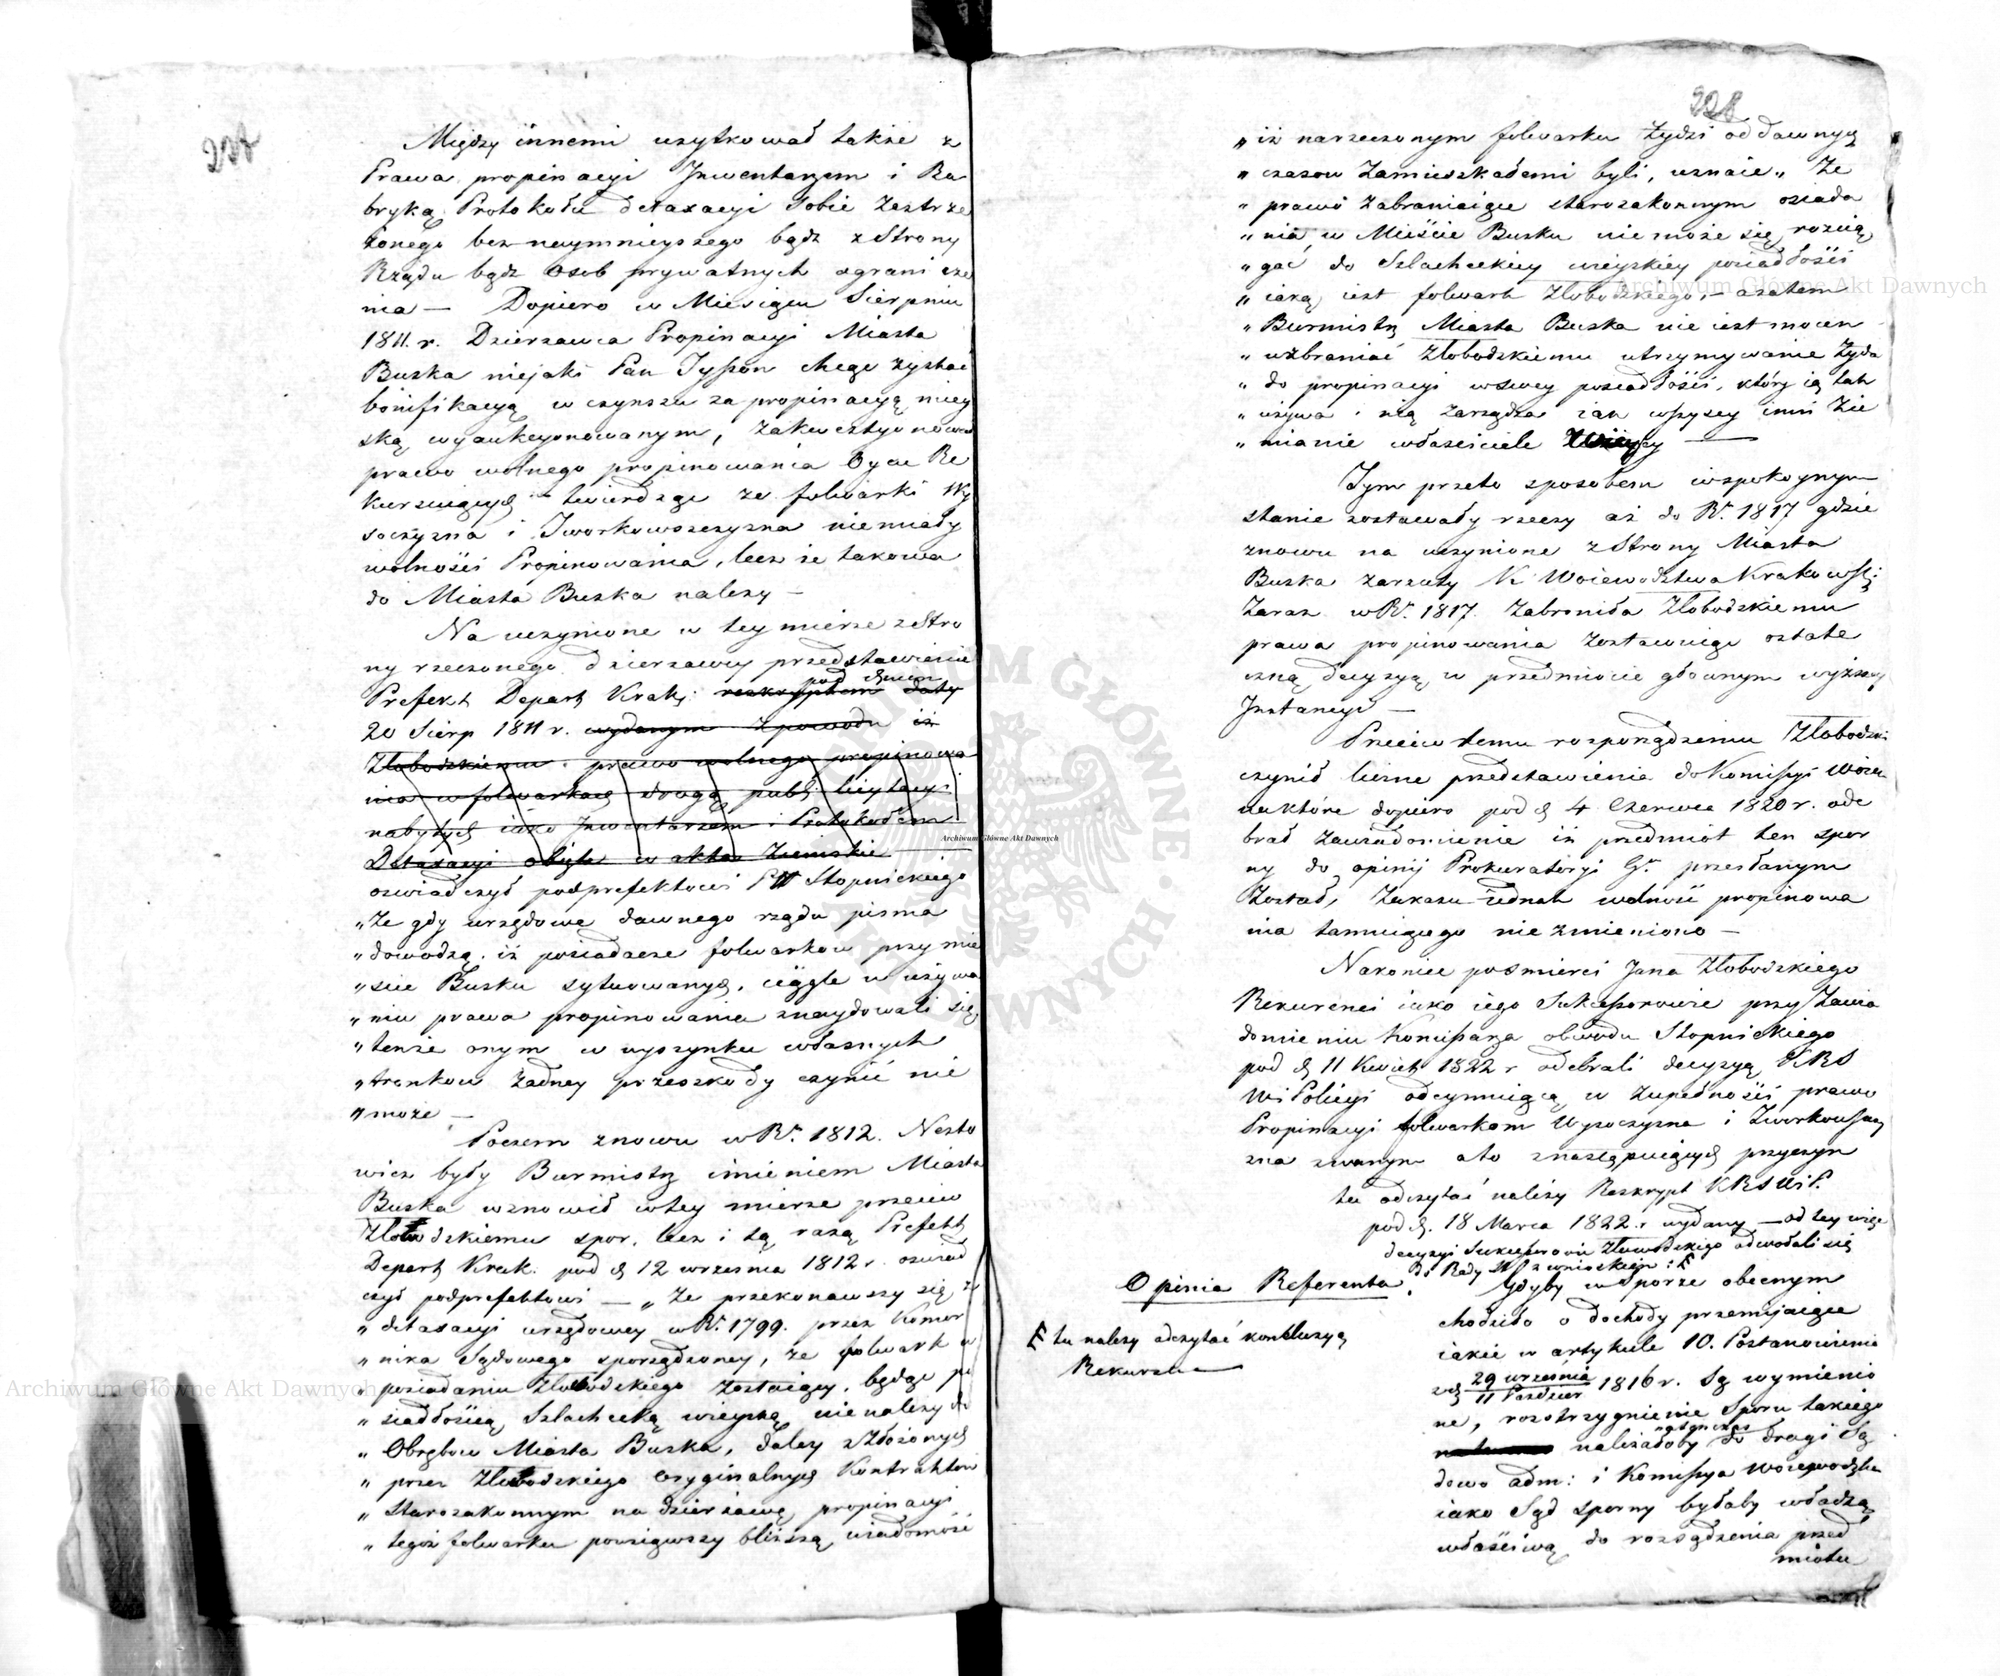 Między innemi użytkował także z
Prawa propinacyi Inwentarzem i Ru
bryką Protokołu detaxacyi sobie zastrze
żonego bez naymnieyszego bądź z Strony
Rządu bądź Osob prywatnych ogranicze
nia — Dopiero w Miesiącu Sierpniu
1811. r. Dzierzawca Propinacyi Miasta
Buska niejaki Pan chcąc zyskać
bonifikacyą w czynszu za propinacyą miey
ską wyaukcyonowanym, zakwestyonował
prawo wolnego propinowania Oyca Re
kursuiących twierdząc ze folwarki Wy
soczyzna i Zworkowszczyzna niemiały
wolności Propinowania, lecz ze takowa
do Miasta Buska należy —
Na uczynione w tey mierze z Stro
ny rzeczonego dzierzawcy przedstawienie
Prefekt Depart Krak: reskryptem daty pod dniem
20 Sierp 1811 r. wydanym z powodu iż
Złobodzkiemu prawo wolnego propinowa
nia w folwarkach drogą publ: licytacyi
nabytych iako Inwentarzem i Protokołem
Detaxacyi oblig w akta Ziemskie
oswiadczył podprefektowi Ptt Stopnickiego
„Ze gdy urzędowe dawnego rządu pisma
„dowodzą, iż posiadacze folwarkow przy mie
„scie Busku sytuowanych, ciągle w używa
„niu prawa propinowania znaydowali się,
„tenże onym w wyszynku własnych
„trunkow żadney przeszkody czynić nie
„może —
Poczem znowu w R. 1812. Nesto
wicz były Burmistrz imieniem Miasta
Buska wznowił w tey mierze przeciw
Złobodzkiemu spor, lecz i tą razą Prefekt
Depart Krak: pod d 12 września 1812 r. oswiad
czył podprefektowi — „Ze przekonawszy się z
„detaxacyi urzędowey w R. 1799. przez Komor
„nika Sądowego sporządzoney, ze folwark w
„posiadaniu Złobodzkiego zostaiący, będąc po
„siadłością Szlachecką wieyską nienależy do
„Obrębow Miasta Buska, daley z złożonych
„przez Złobodzkiego Oryginalnych Kontraktow
„starozakonnym na dzierżawę propinacyi
„tegoż folwarku powziąwszy bliższą wiadomość
228
„iż narzeczonym folwarku Żydzi od dawnych
„czasow zamieszkałemi byli, uznaie„ Ze
„prawo zabraniaiące starozakonnym osiada
„nia w Mieście Busku niemoże się rozcią
„gać do Szlacheckiey wieyskiey posiadłości
„iaką iest folwark Złobodzkiego, — azatem
„Burmistrz Miasta Buska nie iest mocen
„wzbraniać Złobodzkiemu utrzymywanie Żyda
„do propinacyi w swey posiadłości, który ią tak
„używa i nią zarządza iak wszyscy inni Zie
„mianie właściciele
Tym przeto sposobem w spokoynym
stanie zostawały rzeczy aż do R. 1817 gdzie
znowu na uczynione z Strony Miasta
Buska zarzuty K Woiewodztwa Krakowsk:
zaraz w R. 1817 zabroniła Złobodzkiemu
prawa propinowania zostawuiąc ostate
czną decyzyą w przedmiocie głownym wyższey
Instancyi —
Przeciw temu rozporządzeniu Złobodzki
czynił liczne przedstawienia do Komissyi Woiew
na które dopiero pod d 4 Czerwca 1820 r. ode
brał zawiadomienie iż przedmiot ten spor
ny do opinij Prokuratoryi G. przesłanym
Został, Zakazu iednak wolność propinowa
nia tamuiącego niezmieniono —
Nakoniec po śmierci Jana Złobodzkiego
Rekurenci iako iego Sukcessorowie przy zawia
domieniu Komissarza obwodu Stopnickiego
pod d 11 Kwiet 1822 r odebrali decyzyą KRS
W i Policyi odeymuiącą w zupełności prawo
Propinacyi folwarkom Wysoczyzna i Zworkowszczy
zna zwanym a to z następuiących przyczyn
tu odczytać należy Reskrypt KRSWiP.
pod d. 18 Marca 1822. r wydany — od tey więc
decyzyi Sukcessorowie Złobodzkiego odwołali się
Do Rady St z wnioskiem: F
Opinia Referenta. Gdyby w sporze obecnym
chodziło o dochody przemijaiące
F tu należy odczytać konkluzyą
Rekursu —
iakie w artykule 10. Postanowienia
z d 29 września / 11 Paździer 1816 r. Są wymienio
ne, rozstrzygnienie Sporu takiego
należałoby natenczas do drogi Są
dowo adm: i Komissya Woiewodzka
iako Sąd sporny byłaby władzą
właściwą do rozsądzenia przed
miotu
Archiwum Główne Akt Dawnych